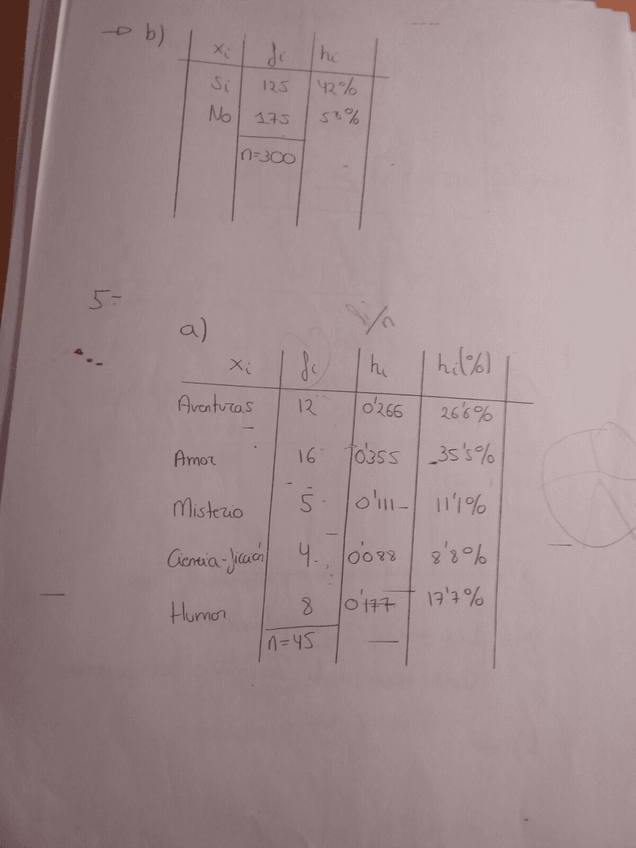 → b)
xi fi hi
Si 125 42%
No 175 58%
n=300
5-
a)
fi/n
xi fi hi hi(%)
Aventuras 12 0'266 26'6%
Amor 16 0'355 35'5%
Misterio 5 0'111 11'1%
Ciencia-ficción 4 0'088 8'8%
Humor 8 0'177 17'7%
n=45